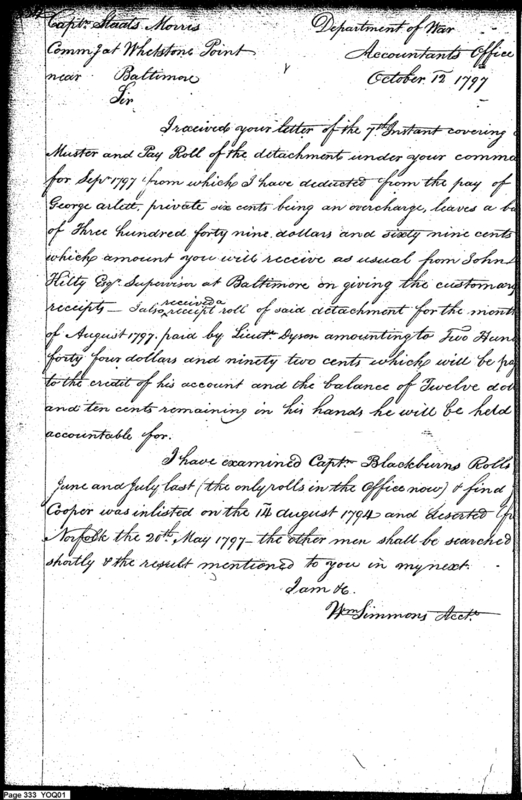 Captn. Staats Morris
Department of War
Commg at Whetstone Point
Accountants Office
near Baltimore
October 12th 1797
Sir
I received your letter of the 7th Instant covering
Muster and Pay Roll of the detachment under your comma
for Sepr 1797 from which I have deducted from the pay of
George arledt, private six cents being an overcharge, leaves a ba
of Three hundred forty nine dollars and sixty nine cents
which amount you will receive as usual from John
Kilty Esqr. Supervisor at Baltimore on giving the customary
receipts — I also received a receipt roll of said detachment for the month
of August 1797. paid by Lieutt. Dyson amounting to Two Hun
forty four dollars and ninety two cents which will be pa
to the credit of his account and the balance of Twelve dol
and ten cents remaining in his hands he will be held
accountable for.
I have examined Captn. Blackburns Rolls
June and July last (the only rolls in the Office now) & find
Cooper was inlisted on the 14 august 1794 and deserted fr
Norfolk the 20th. May 1797 — the other men shall be searched
shortly & the result mentioned to you in my next.
I am &c.
Wm Simmons Acctt.
Page 333 YOQ01